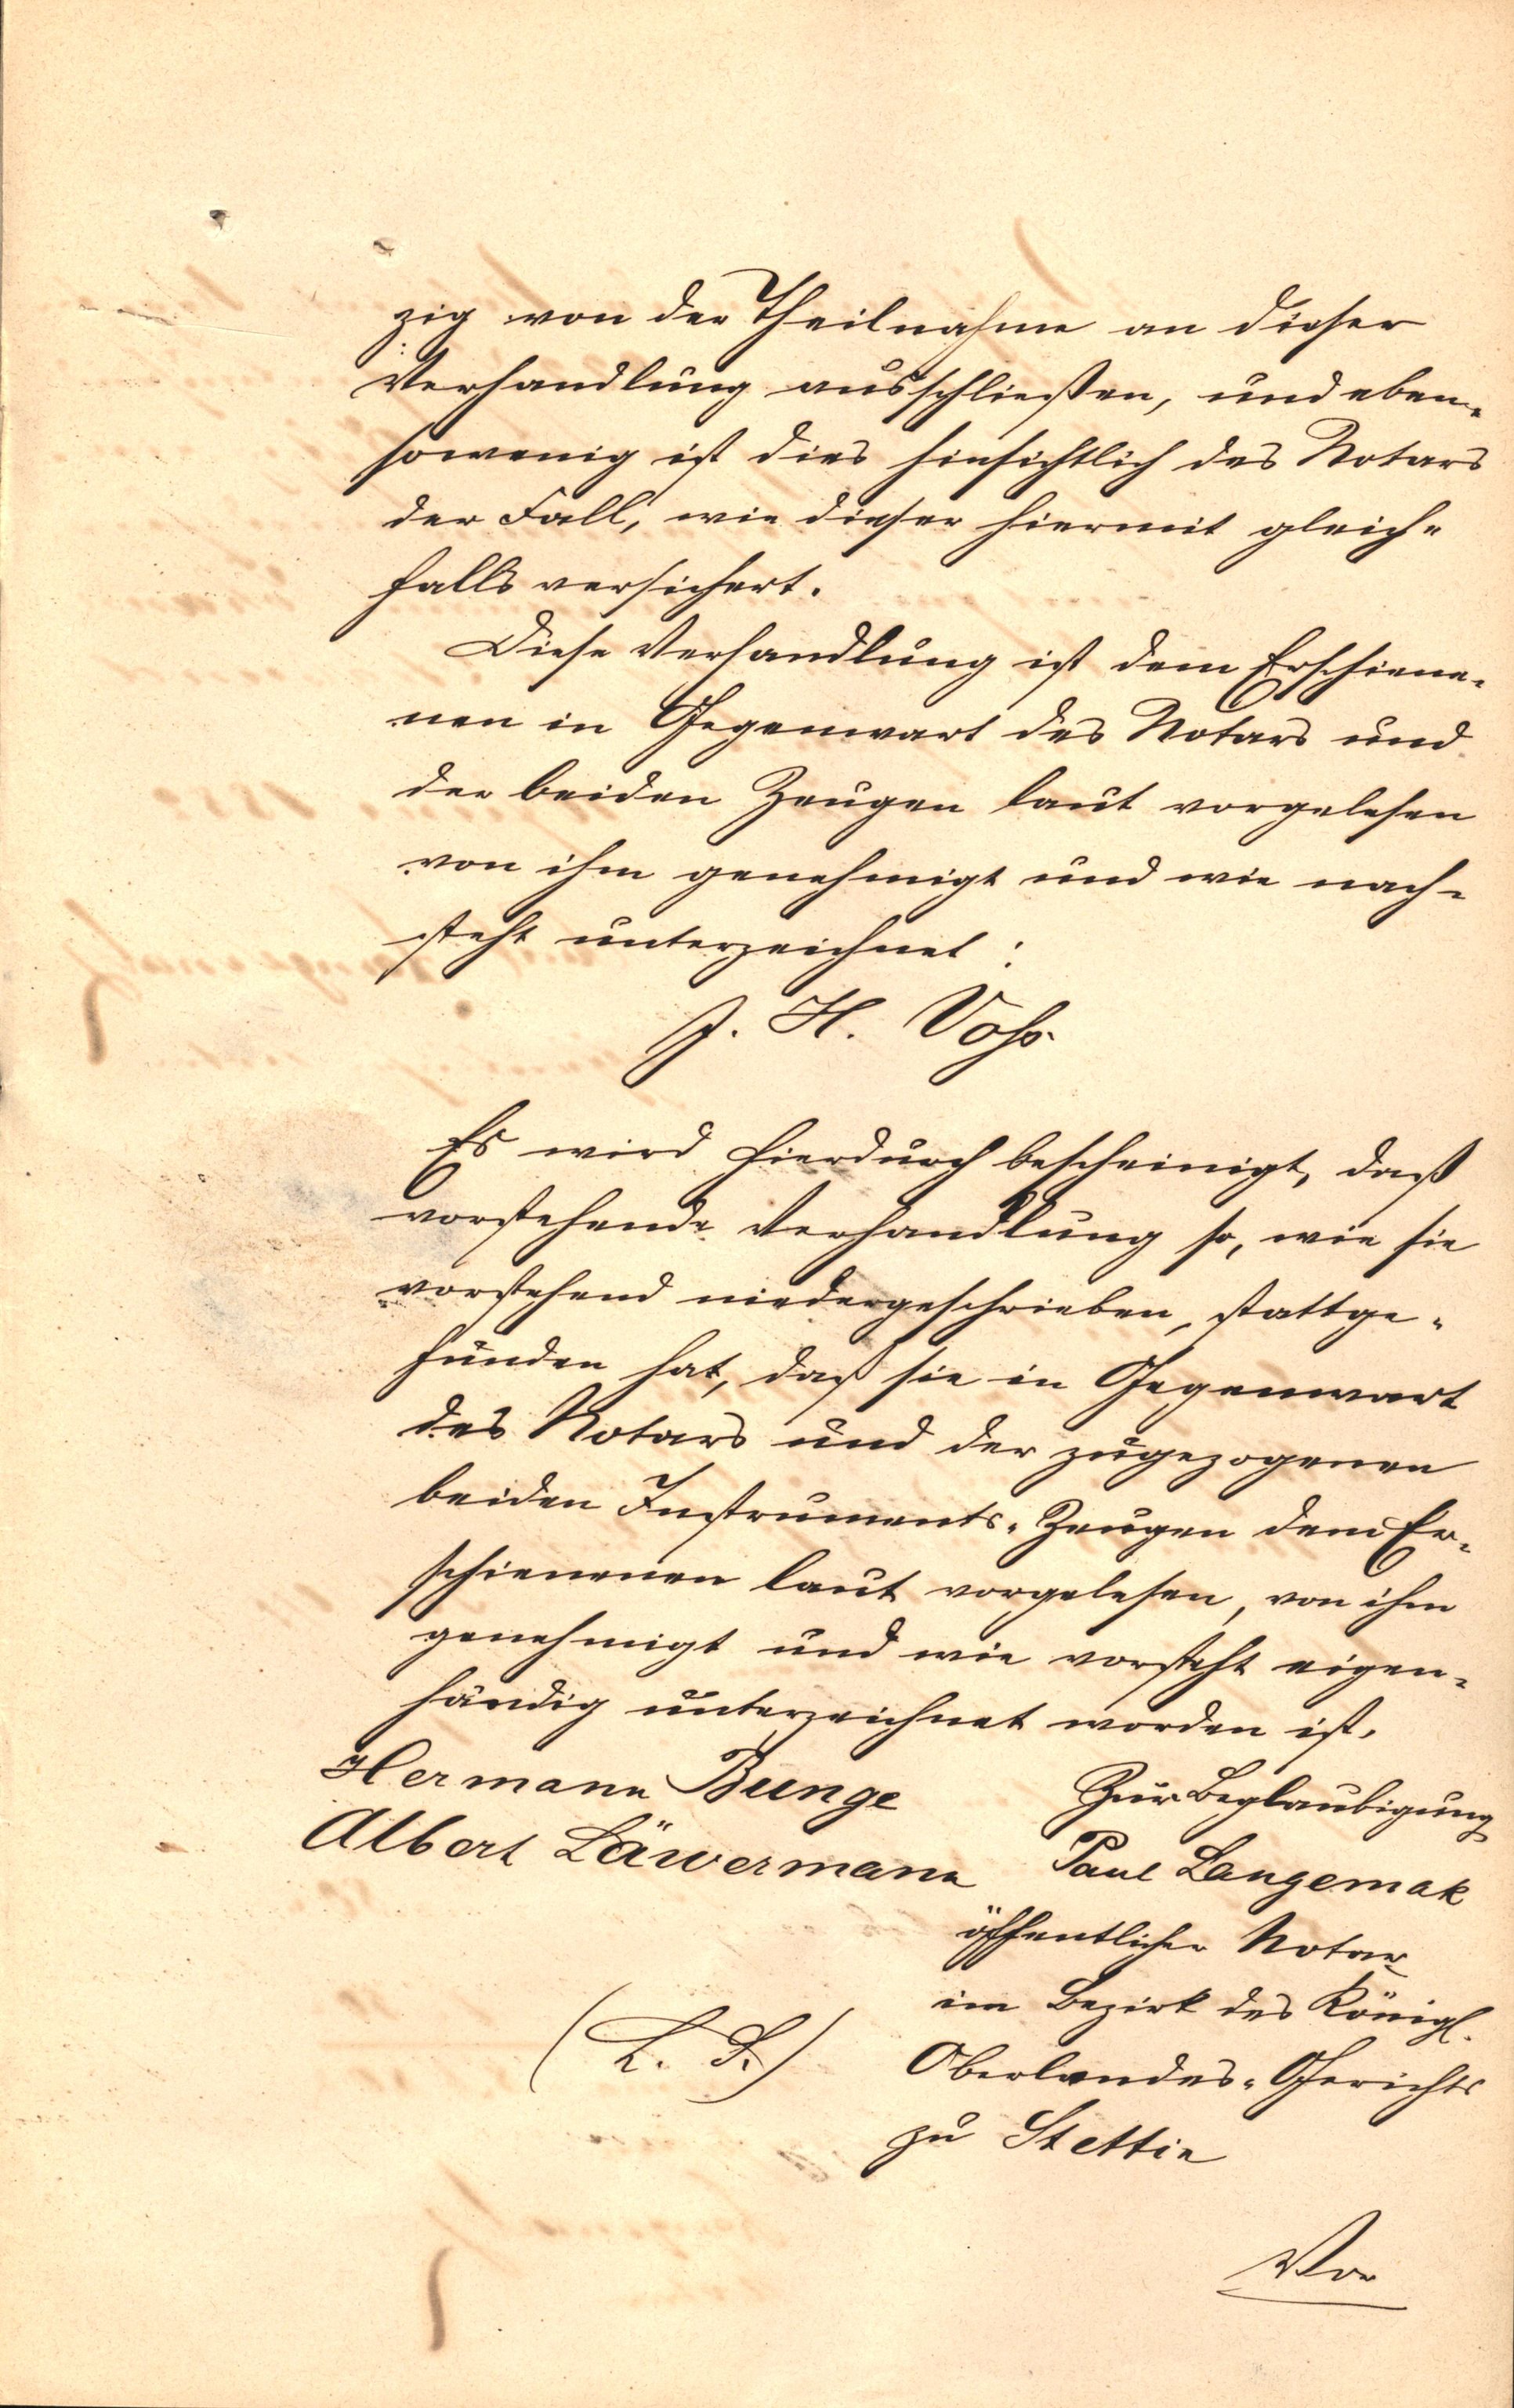 zig von der Theilnahme an dieser
Verhandlung ausschließen, und eben-
sowenig ist dies hinsichtlich des Notars
der Fall, wie dieser hiermit gleich-
falls versichert.
Diese Verhandlung ist dem Erschiene-
nen in Gegenwart des Notars und
der beiden Zeugen laut vorgelesen
von ihm genehmigt und wie nach-
steht unterzeichnet:
J. H. Vohs
Es wird hierdurch bescheinigt, daß
vorstehende Verhandlung so, wie sie
vorstehend niedergeschrieben, stattge-
funden hat, daß sie in Gegenwart
des Notars und der zugezogenen
beiden Instruments-Zeugen dem Er-
schienenen laut vorgelesen, von ihm
genehmigt und wie vorsteht eigen-
händig unterzeichnet worden ist.
Hermann Bunge
Albert Läwermann
Zur Beglaubigung
Paul Langemak
öffentlicher Notar
im Bezirk des Königl.
Oberlandes-Gerichts
zu Stettin
(L. S.)
Vor